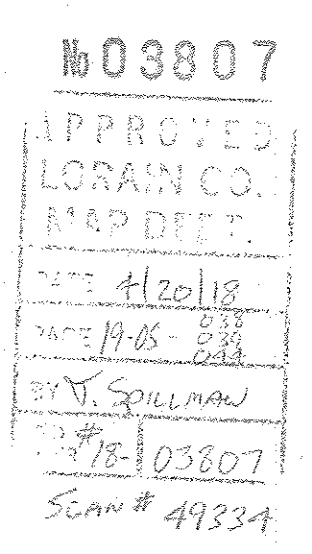 No 03807
APPROVED
LORAIN CO.
MAP DEPT.
DATE 4/20/18
PAGE 19-05- 038
039
044
BY J. SPILLMAN
# 18- 03807
SCAN # 49334